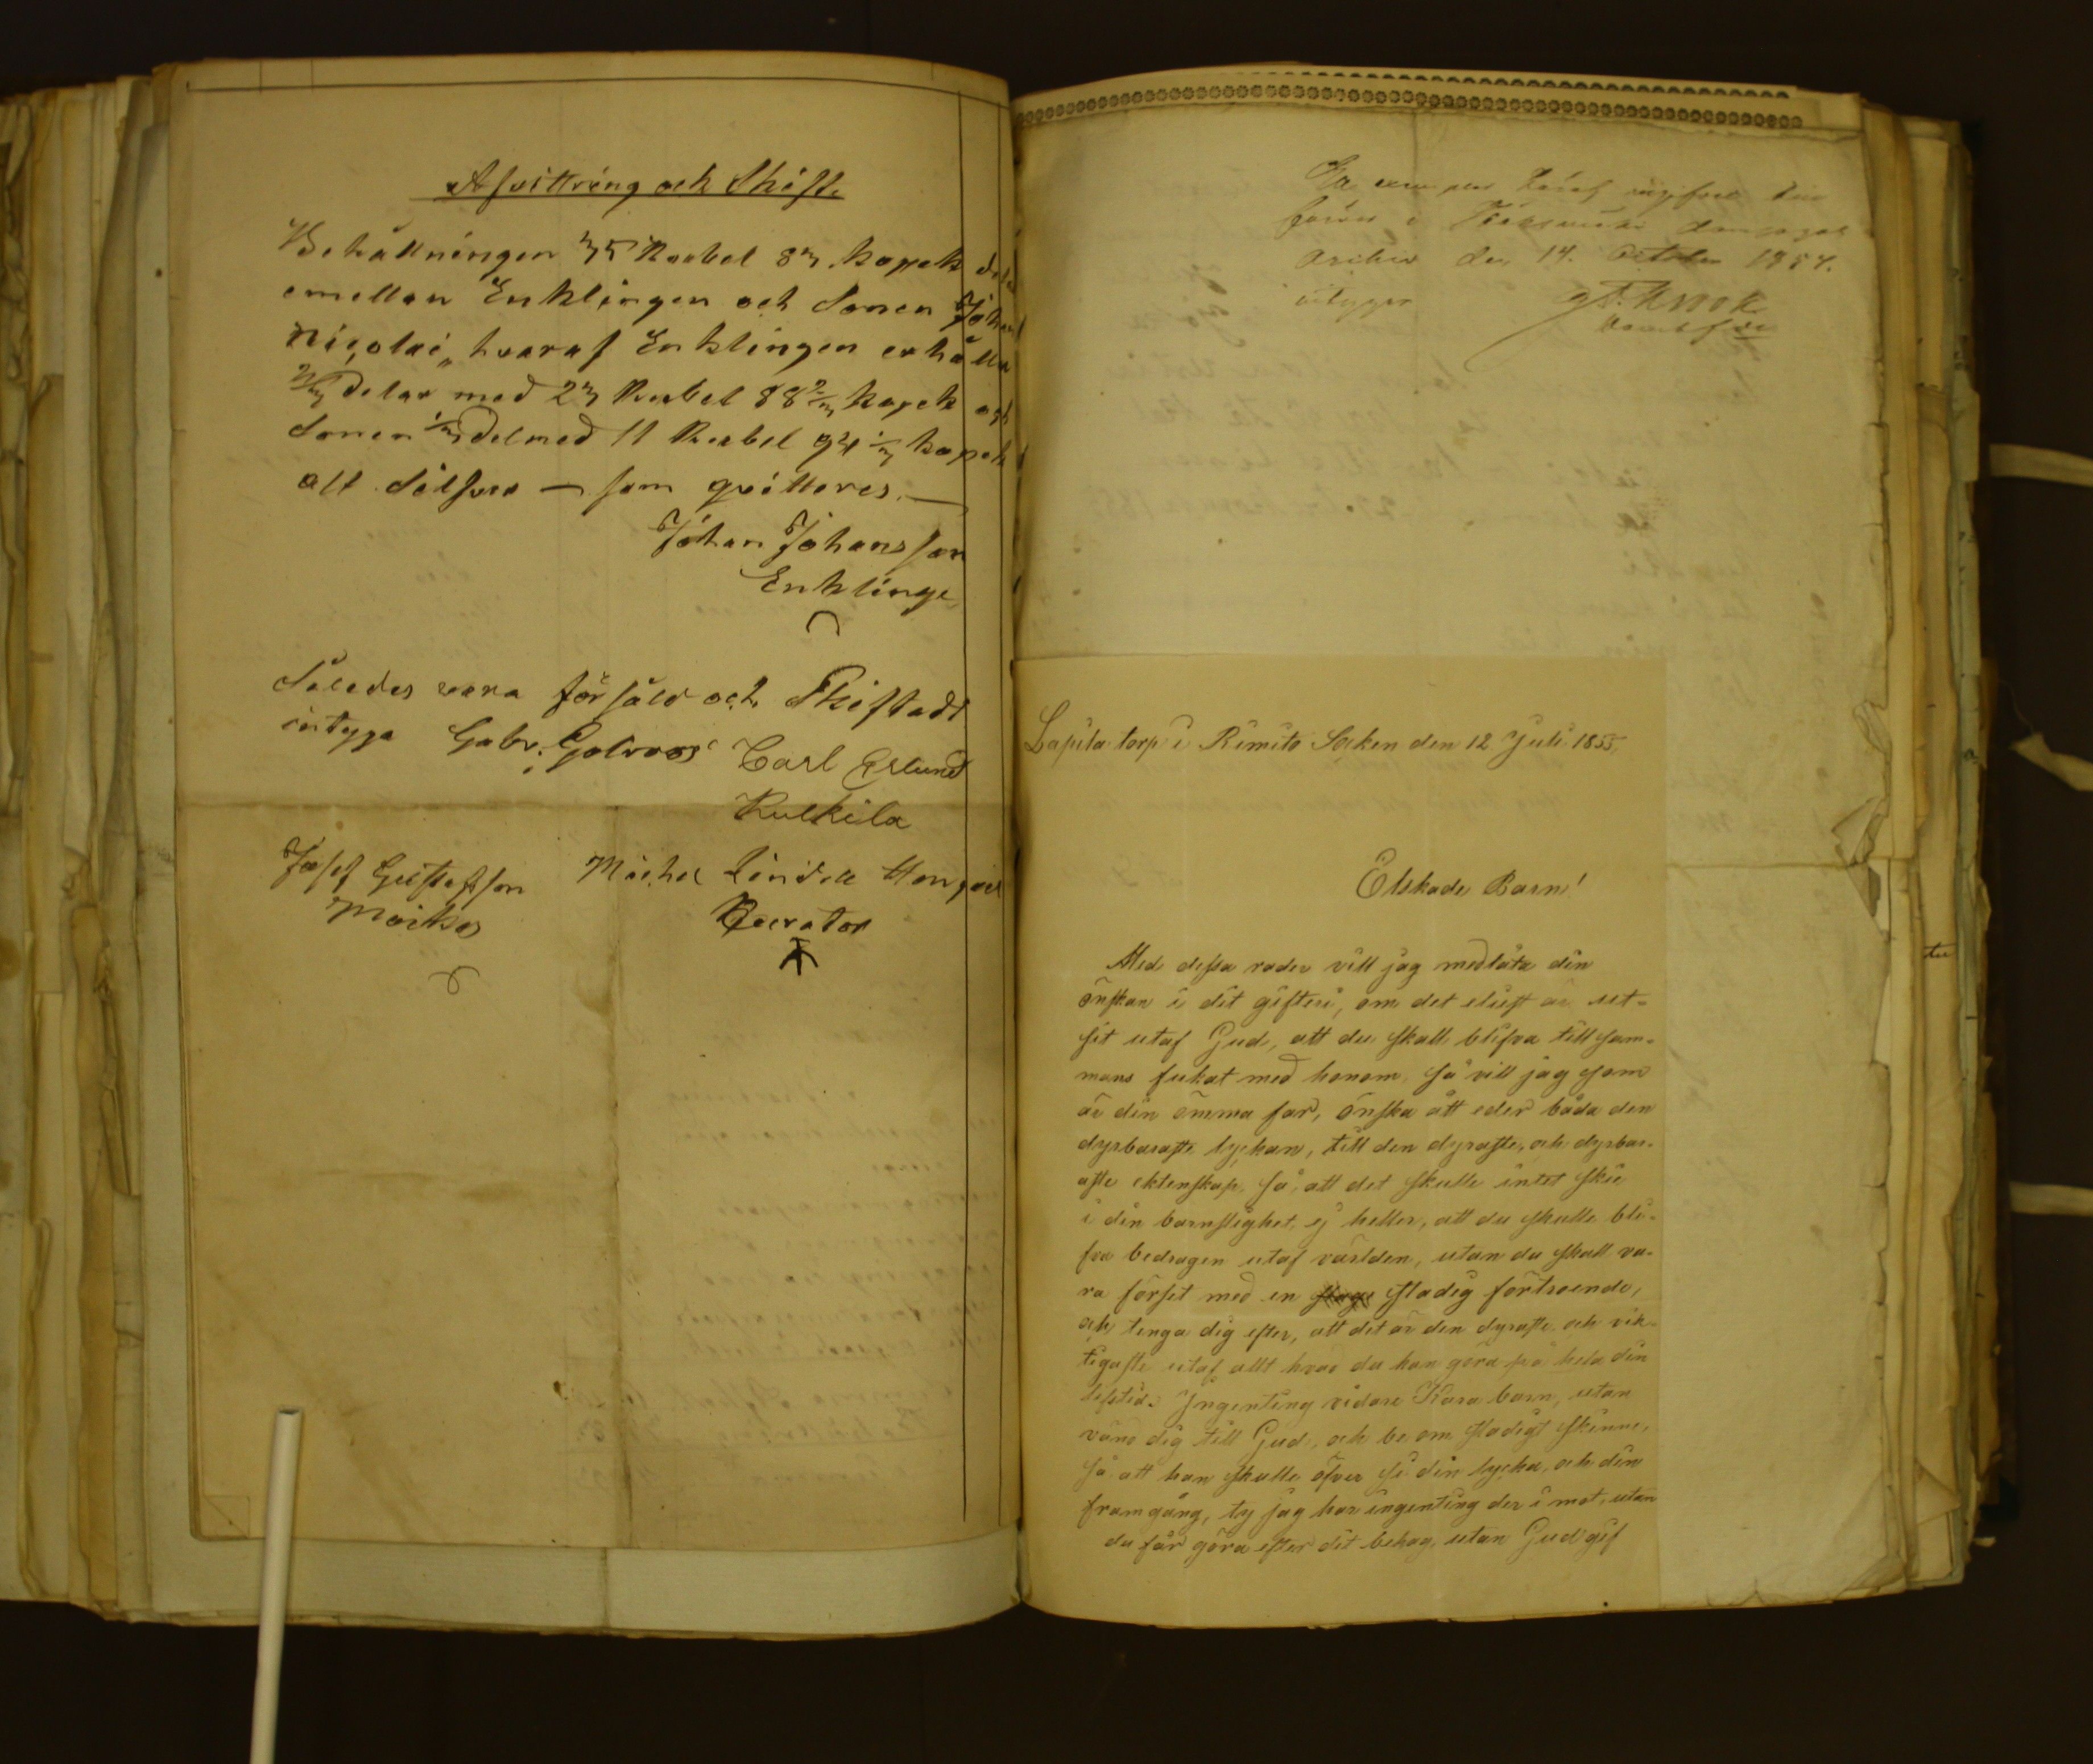 Afvittring och Skifte
Behållningen 35 Rubel 83 kopek
emellan Enklingen och Sonen Johan
Nicolai, hvaraf Enklingen erhåller
2/3 delar med 23 Rubel 88 2/3 kopek och
Sonen 1/3 del med 11 Rubel 94 1/3 kopek
alt Silfver — som qvitteres. —
Johan Johansson
Enklinge
Således vara försåld och Skiftadt
intyga Gabr. Carl Eklund
Kulkila
Josef Gustafsson Michel Lindell
Moikos Kurator
den 14. October 1854.
intygar
Lapila torp i Rimito Socken den 12 Juli 1855.
Elskade Barn!
Med dessa rader vill jag medlåta din
önskan i dit gifteri, om det eliest är ut-
sit utaf Gud, att du skall blifva till sam-
mans fukat med honom, så vill jag som
är din ömma far, önska ått eder båda den
dyrbaraste lyckan, till den dyraste, och dyrbar-
aste ektenskap, så, att det skulle intet skie
i din barnslighet, ej heller, att du skulle bli-
fva bedragen utaf världen, utan du skall va-
ra förset med en stadig förtroende,
och tenga dig efter, att det är den dyraste och vik-
tigaste utaf allt hvad du kan göra på hela din
lifstid. Ingenting vidare Kara barn, utan
vänd dig till Gud, och be om stadigt skinne,
så att han skulle öfver se din lycka, och din
framgång, ty jag har ingenting der i mot, utan
du får göra efter dit behag, utan Gud gif